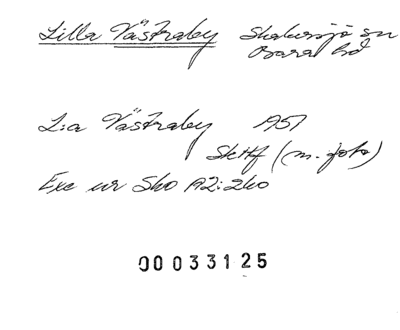 Lilla Västraby Skabersjö sn
Bara hd
L:a Västraby 1951
SkHf (m. foto)
Exc ur Sko A2:260
00033125